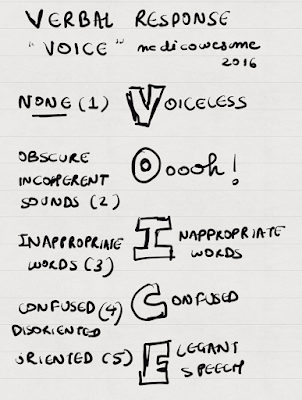 VERBAL RESPONSE
"VOICE" medicowesome
2016
NONE (1) VOICELESS
OBSCURE
INCOHERENT
SOUNDS (2)
Ooooh!
INAPPROPRIATE
WORDS (3)
INAPPROPRIATE
WORDS
CONFUSED (4)
DISORIENTED
CONFUSED
ORIENTED (5)
ELEGANT
SPEECH